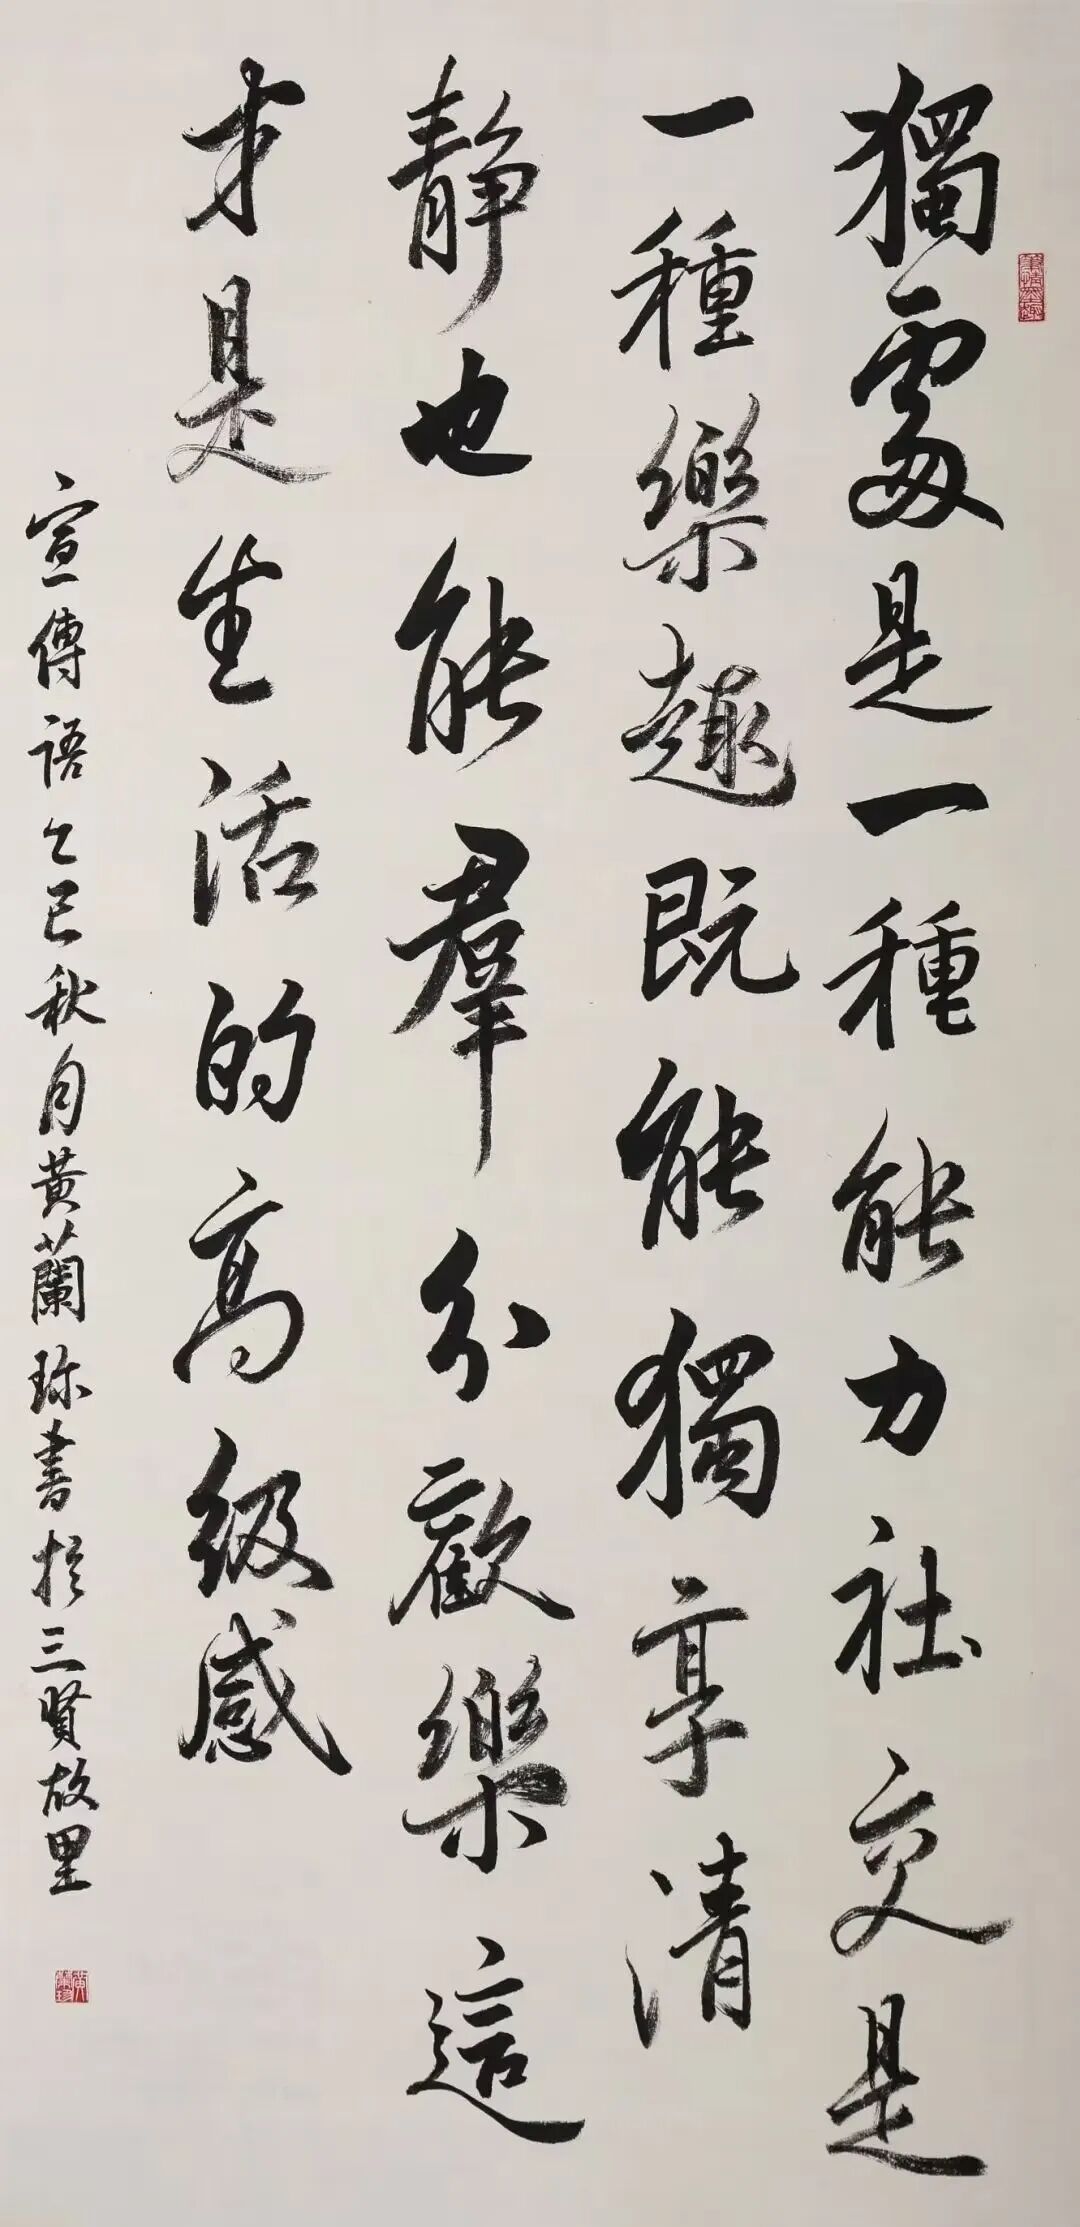 獨處是一種能力社交是
一種樂趣既能獨享清
静也能羣分歡樂這
才是生活的高级感
宣傳語乙巳秋月黄蘭珎書於三賢故里